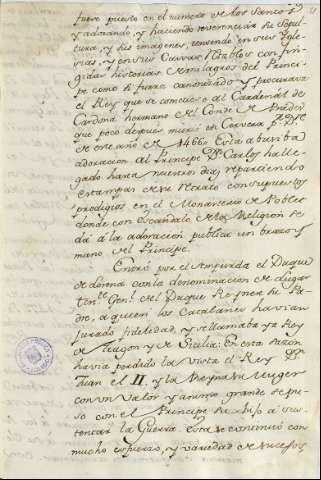 fuere puesto en el numero de los Santos
y adorando, y haciendo reverencias su Sepul-
tura, y sus imagenes, teniendo en sus Igle-
sias, y en sus Casas Retablos con fin-
gidas historias de milagros del Princi-
pe como si fuera canonizado y procurava
el Rey que se cometiese al Cardenal de
Cardona hermano del Conde de Prades
que poco despues murio en Cervera
de este año de 1466. Esta abusiba
adoracion al Principe Dn. Carlos ha lle-
gado hasta nuestros dias, repartiendo
estampas de su Retrato con supuestos
prodigios en el Monasterio de Poblet
donde con Escandalo de la Religion se
da à la adoracion publica un brazo y
mano del Principe.
Entró por el Ampurda el Duque
de Lorena con la denominacion de Lugar
tente. Genl. del Duque Reyner su Pa-
dre, a quien los Catalanes havian
jurado fidelidad, y se llamaba ya Rey
de Aragon y de Sicilia: En esta sazon
havia perdido la vista el Rey Dn.
Juan el II, y la Reyna su Muger
con un valor y animo grande se pu-
so con el Principe su hijo à sus-
tentar la Guerra. Esta se continuó con
mucho esfuerzo, y variedad de sucesos